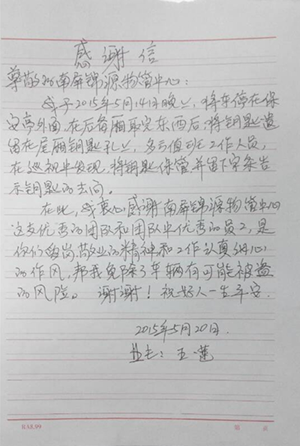 感谢信
尊敬的南屏锦源物管中心:
我于2015年5月14日晚上,将车停在保
安亭外面,在后备厢取完东西后,将钥匙遗
留在尾厢钥匙孔上,多亏值班工作人员,
在巡视中发现,将钥匙保管并留下字条告
示钥匙的去向。
在此,我衷心感谢南屏锦源物管中心
这支优秀的团队和团队中优秀的员工,是
你们爱岗敬业的精神和工作认真细心
的作风,帮我免除了车辆有可能被盗
的风险。谢谢!祝好人一生平安。
2015年5月20日.
业主:王莲